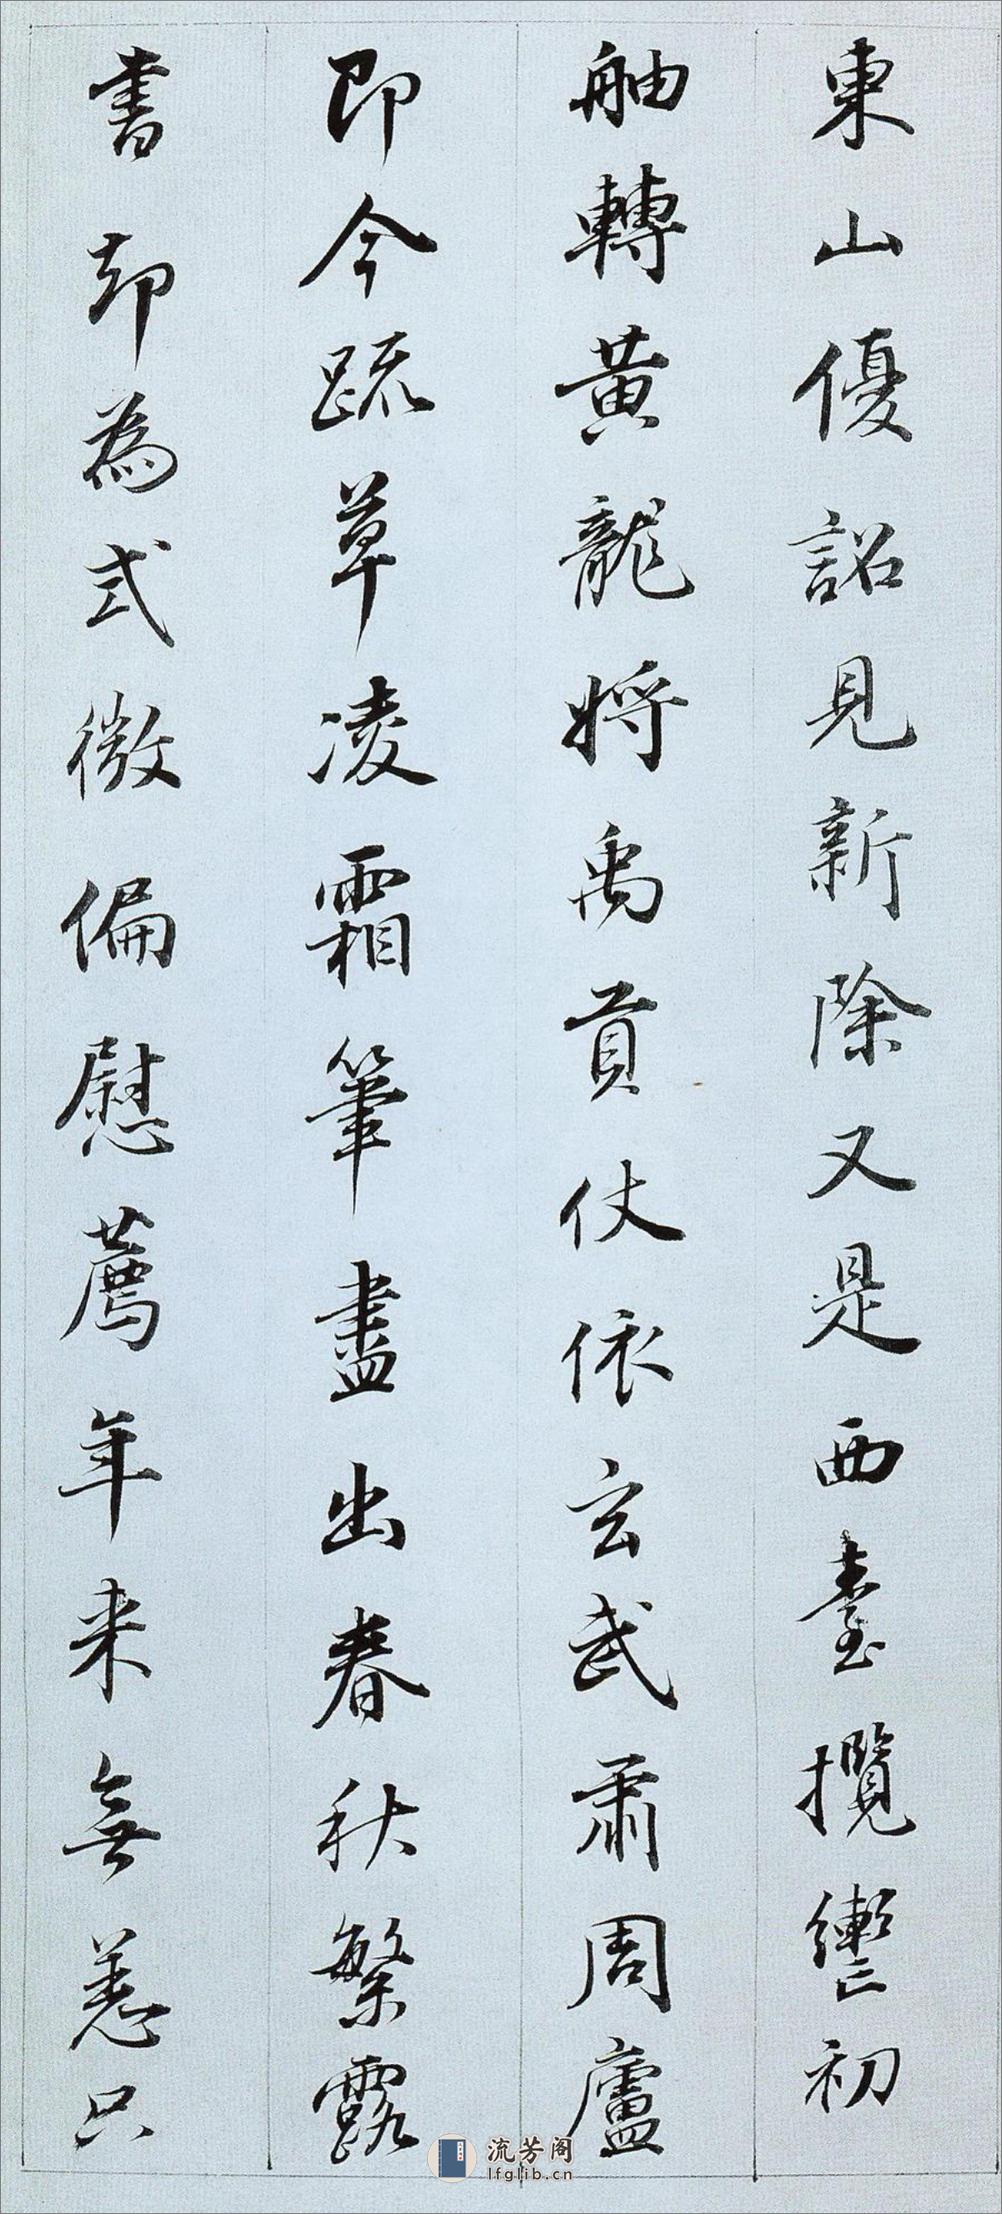 東山優詔見新除又是西臺攬轡初
舳轉黃龍將禹貢仗依玄武肅周廬
即今疏草凌霜筆盡出春秋繁露
書却為式微偏慰薦年来無恙只
流芳阁
lfglib.cn